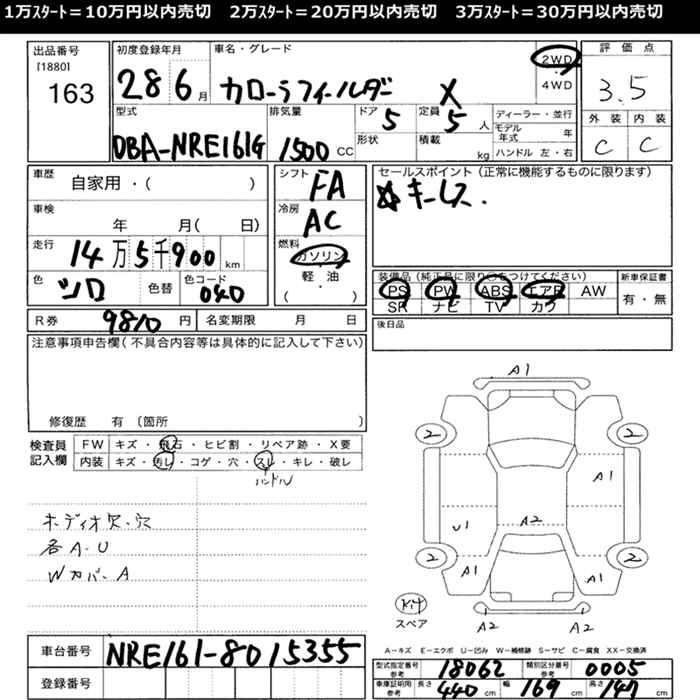 1万ｽﾀｰﾄ＝10万円以内売切　2万ｽﾀｰﾄ＝20万円以内売切　3万ｽﾀｰﾄ＝30万円以内売切
出品番号 [1880] 163
初度登録年月 28 6月
車名・グレード カローラフィールダー X
2WD・4WD
評価点 3.5
外装 C 内装 C
型式 DBA-NRE161G
排気量 1500 CC
ドア 5
定員 5人
形状
積載 kg
ディーラー・並行
モデル年式 年
ハンドル 左・右
車歴 自家用・( )
車検 年 月( 日)
走行 14万5千900km
色 シロ 色替 色コード 040
シフト FA
冷房 AC
燃料 ガソリン・軽・油 ( )
セールスポイント (正常に機能するものに限ります)
☆キーレス.
装備品 (純正品に限り○をつけてください)
PS PW ABS エアB AW
SR ナビ TV カワ
新車保証書 有・無
R券 9810円 名変期限 月 日
後日品
注意事項申告欄(不具合内容等は具体的に記入して下さい)
修復歴 有 〔箇所 〕
検査員記入欄
FW キズ・飛石・ヒビ割・リペア跡・X要
内装 キズ・汚レ・コゲ・穴・スレ・キレ・破レ
ハンドル
オーディオ欠.穴
各A.U
Wカバー.A
A1
2 2
A1
U1 A2
2 2
A1 A1
Kit
スペア
A2 A2
A－キズ E－エクボ U－凹み W－補修跡 S－サビ C－腐食 XX－交換済
車台番号 NRE161-8015355
登録番号
型式指定番号 参考 18062 類別区分番号 参考 0005
車庫証明用 参考 長さ 440cm 幅 169cm 高さ 147cm